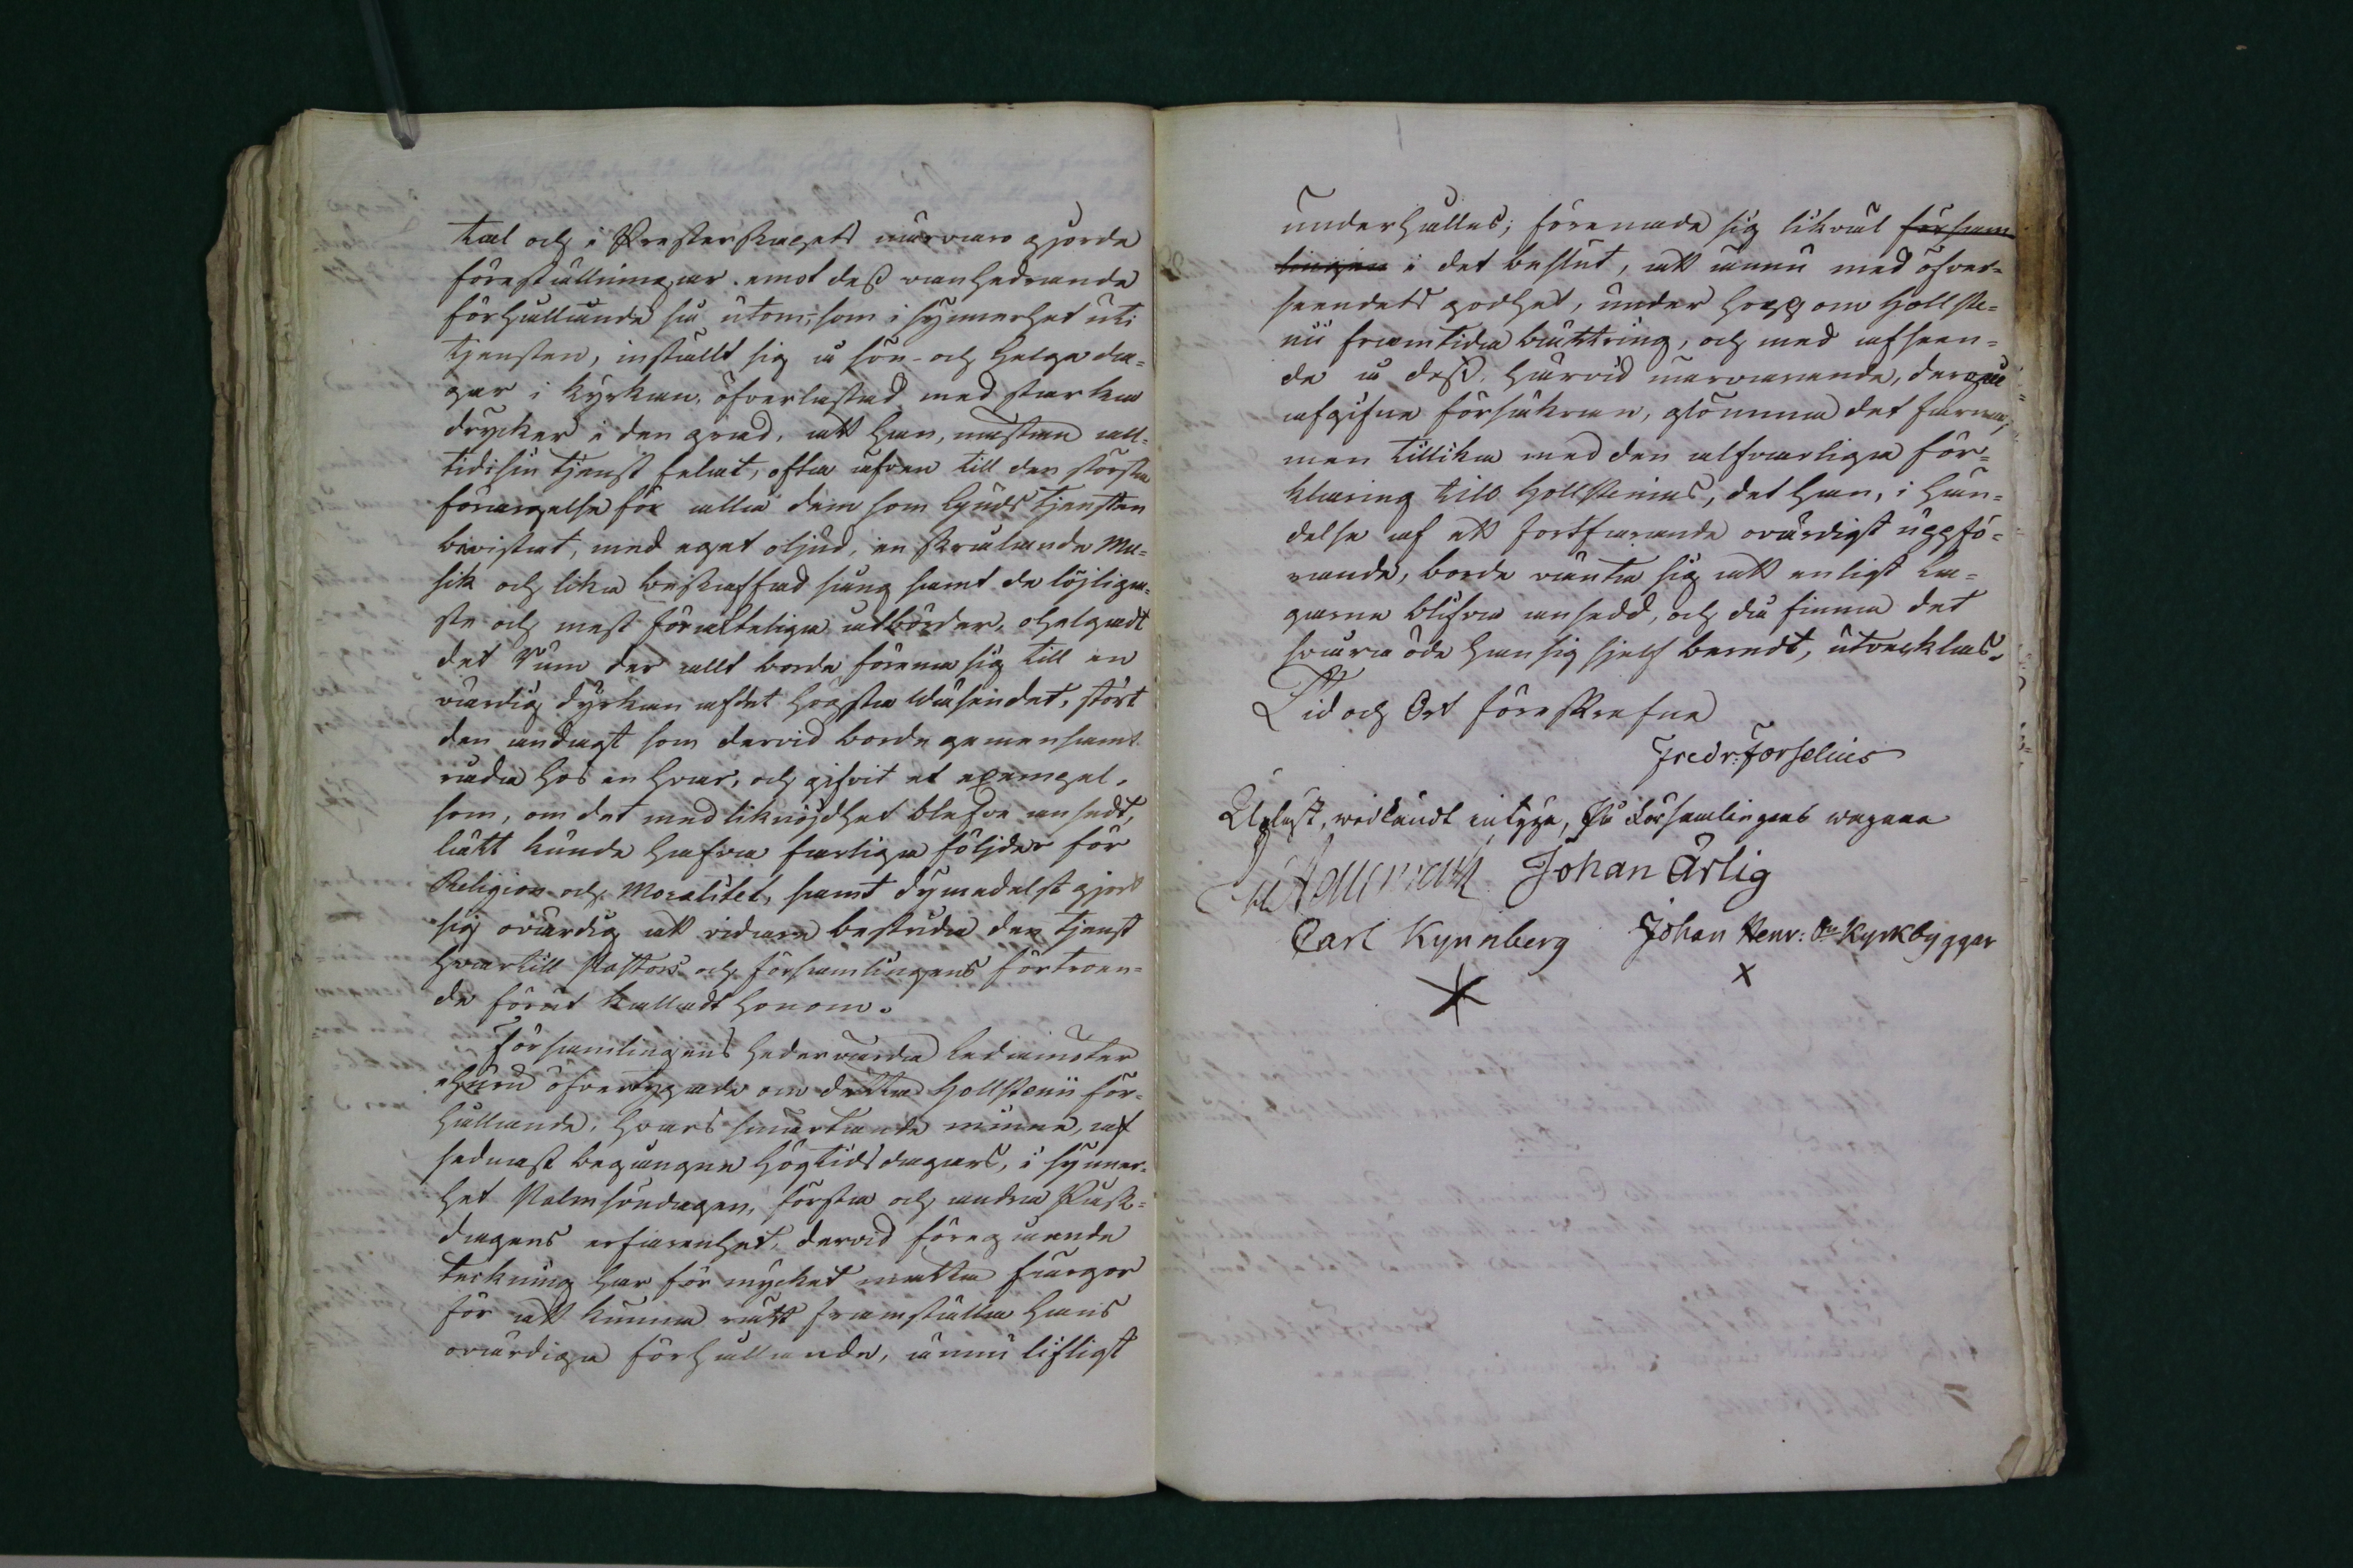 tal och i Presterskapets närvaro gjorde
föreställningar emot dess vanhedrande
förhållande så utom, som i synnerhet uti
tjensten, inställt sig å sön- och helgeda=
gar i kyrkan, öfverlastad med starka
drycker i den grad, att han, nästan all=
tid i sin tjenst felat, ofta äfven till den största
förargelse för alla dem som Gudstjensten
bevistat, med eget oljud, en skrålande Mu=
sik och lika beskaffad sång samt de löjliga=
ste och mest förakteliga åtbörder, ohelgadt
det Rum der allt borde förena sig till en
värdig dyrkan af det högsta Wäsendet, stört
den andagt som dervid borde gemensamt
råda hos en hvar, och gifvit et exempel,
som, om det med liknöjdhet blefve ansedt,
lätt kunde hafva farliga följder för
Religion och Moralitet, samt dymedelst gjort
sig ovärdig att vidare bestrida den tjenst
hvartill Pastors och församlingens förtroen=
de förut kalladt honom.
Församlingens hedervärda Ledamöter
ehuru öfvertygade om detta Hollstenii för=
hållande, hvars smärtande minne, af
sednast begångne Högtidsdagars, i synner=
het Palmsöndagen, första och andra Påsk=
dagens erfarenhet, dervid föregående
teckning har för mycket matta färgor
för att kunna rätt framställa hans
ovärdiga förhållande, ännu lifligt
underhålles; förenade sig likväl försam
lingen i det beslut, att ännu med öfver=
seendets godhet, under hopp om Hollste=
nii framtida bättring, och med afseen=
de å dess, härvid närvarande, derpå
afgifne försäkran, glömma det farna;
men tillika med den alfvarliga för=
klaring till Hollstenius, det han, i hän=
delse af ett fortfarande ovärdigt uppfö=
rande, borde vänta sig att enligt La=
garne blifva ansedd, och då finna det
svåra öde han sig sjelf beredt, utvecklas.
Tid och Ort föreskrefne
Fredr: Forselius
Upläst, vidkändt intyga, På Församlingens wägnar
Johan Ärlig
Carl Kynnberg Johan Henr: Kyrkbyggar